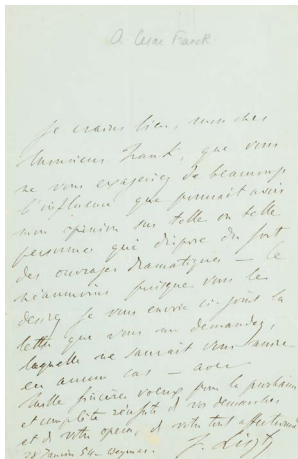 A Cesar Franck
Je crains bien, mon cher
Monsieur Frank, que vous
ne vous exageriez de beaucoup
l'influence que pourrait avoir
mon opinion sur telle ou telle
personne qui dispose du fort
des ouvrages dramatiques — 
néanmoins puisque vous le
desirez je vous envoie ci-joint la
lettre que vous me demandez,
laquelle ne saurait vous nuire
en aucun cas — avec
mille sincères voeux pour la prochaine
et complète réussite de vos demarches
et de votre opera, de votre tout affectionné
28 Janvier 54 Weymar. F. Liszt